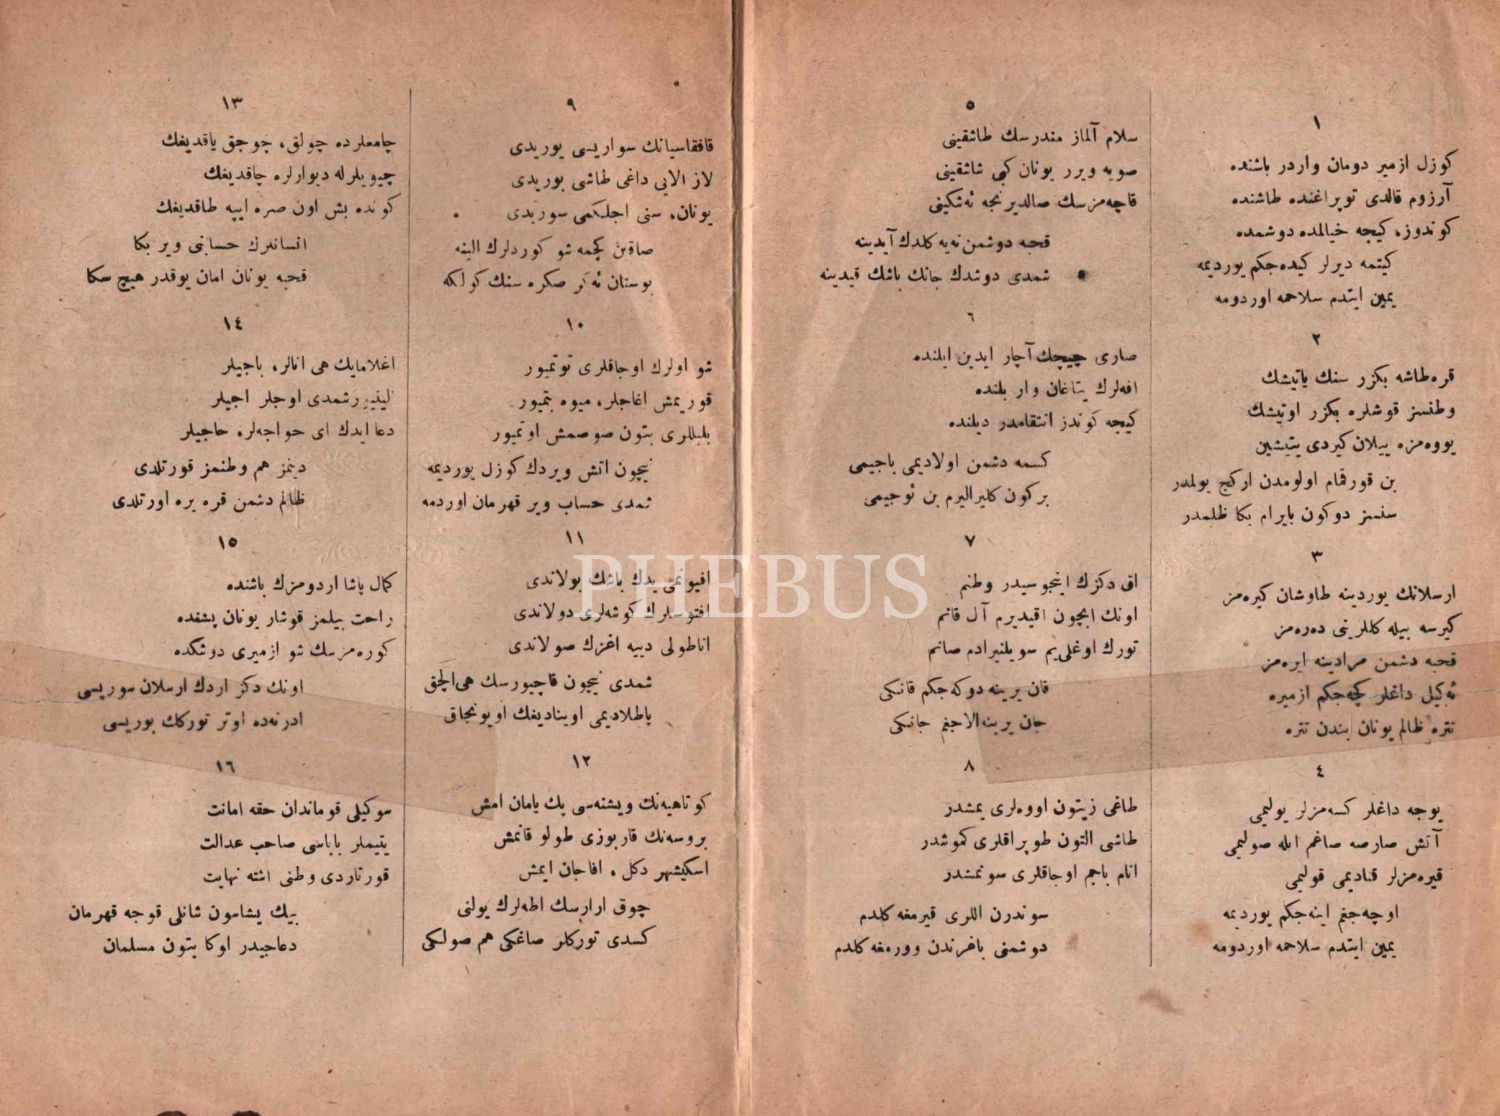 ١
كوزل ازمير دومان واردر باشنده
آرزوم قالدى توپراغنده طاشنده
كوندوز، كيجه خيالمده دوشمده
كيتمه ديرلر كيده‌جكم يورديمه
يمين ايتدم سلاحمه اوردومه
٢
قره‌طاشه بكزر سنك ياتيشك
وطنسز قوشلره بكزر اوتيشك
يووه‌مزه ييلان كيردى يتيشين
بن قورقمام اولومدن اركج يولمدر
سنسز دوكون بايرام بكا ظلمدر
٣
ارسلانك يوردينه طاوشان كيره‌مز
كيرسه بيله كللرينى ده‌ره‌مز
قحبه دشمن مرادينه ايره‌مز
ئه‌كيل داغلر كچه‌جكم ازميره
تتره ظالم يونان بندن تتره
٤
يوجه داغلر كسه‌مزلر يوليمى
آتش صارصه صاغم ايله صوليمى
قيره‌مزلر قناديمى قوليمى
اوچه‌جغم اينه‌جكم يورديمه
يمين ايتدم سلاحمه اوردومه
٥
سلام آلماز مندرسك طاشقينى
صويه ويرر يونان كبى شاشقينى
قاچه‌مزسك صالديرنجه ئه‌شكينى
قحبه دوشمن نه‌يه كلدك آيدينه
شمدى دوشدك جانك باشك قيدينه
٦
صارى چيچك آچار ايدين ايلنده
افه‌لرك يتاغان وار بلنده
كيجه كوندز انتقامدر ديلنده
كسمه دشمن اولاديمى باجيمى
بركون كليراليرم بن ئوجيمى
٧
اق دكزك اينجوسيدر وطنم
اونك ايچون اقيديرم آل قانم
تورك اوغلى‌يم سويلنيرادم صانم
قان يرينه دوكه‌جكم قانكى
جان يرينه‌الاجغم جانكى
٨
طاغى زيتون اووه‌لرى يمشدر
طاشى التون طوپراقلرى كموشدر
انام باجم اوجاقلرى سونمشدر
سوندرن اللرى قيرمغه كلدم
دوشمنى باغرندن وورمغه كلدم
٩
قافقاسيانك سواريسى يوريدى
لاز الايى داغى طاشى بوريدى
يونان، سنى اجلكمى سوريدى
صاقين كچمه شو كوردلرك الينه
بوستان ئه‌كر صكره سنك كولكه
١٠
شو اولرك اوجاقلرى توتميور
قوريمش اغاجلر، ميوه بتميور
بلبللرى بتون صوصمش اوتميور
نيچون اتش ويردك كوزل يورديمه
شمدى حساب وير قهرمان اوردمه
١١
افيونمى يدك باشك بولاندى
افتوسلرك كوشه‌لرى دولاندى
اناطولى دييه اغزك صولاندى
شمدى نيچون قاچيورسك هى‌الچق
پاطلاديمى اويناديغك اويونجاق
١٢
كوتاهيه‌نك ويشنه‌سى پك يامان امش
بروسه‌نك قارپوزى طولو قانمش
اسكيشهر دكل، افاجان ايمش
چوق ارارسك اطه‌لرك يولنى
كسدى توركلر صاغكى هم صولكى
١٣
جامعلرده چولق، چوجق ياقديغك
چيويلرله ديوارلره چاقديغك
كونده بش اون صره ايپه طاقديغك
انسانلرك حسابنى وير بكا
قحبه يونان امان يوقدر هيچ سكا
١٤
اغلامايك هى انالر، باجيلر
شمدى اوجلر اجيلر
دعا ايدك اى حواجه‌لره حاجيلر
دينمز هم وطنمز قورتلدى
ظالم دشمن قره يره اورتلدى
١٥
كمال پاشا اردومزك باشنده
راحت بيلمز قوشار يونان پشنده
كوره‌مزسك شو ازميرى دوشكده
اونك دكز اردك ارسلان سوريسى
ادرنه‌ده اوتر توركك بوريسى
١٦
سوكيلى قوماندان حقه امانت
يتيملر باباسى صاحب عدالت
قورتاردى وطنى اشته نهايت
بيك يشاسون شانلى قوجه قهرمان
دعاجيدر اوكا بتون مسلمان
PHEBUS